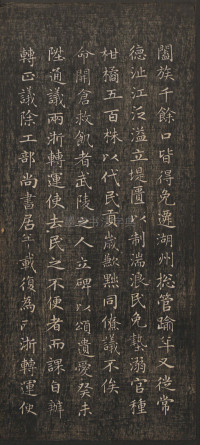 闔族千餘口皆得免遷湖州捴管踰年又從常
德沚江泛溢立堤堰以制湍浪民免墊溺官種
柑橘五百株以代民貢歲歉㸃同僚議不俟
命開倉救飢者武陵之人立碑以頌遺愛癸未
陞通議兩浙轉運使去民之不便者而課自辦
轉正議除工部尚書居半載復為江浙轉運使